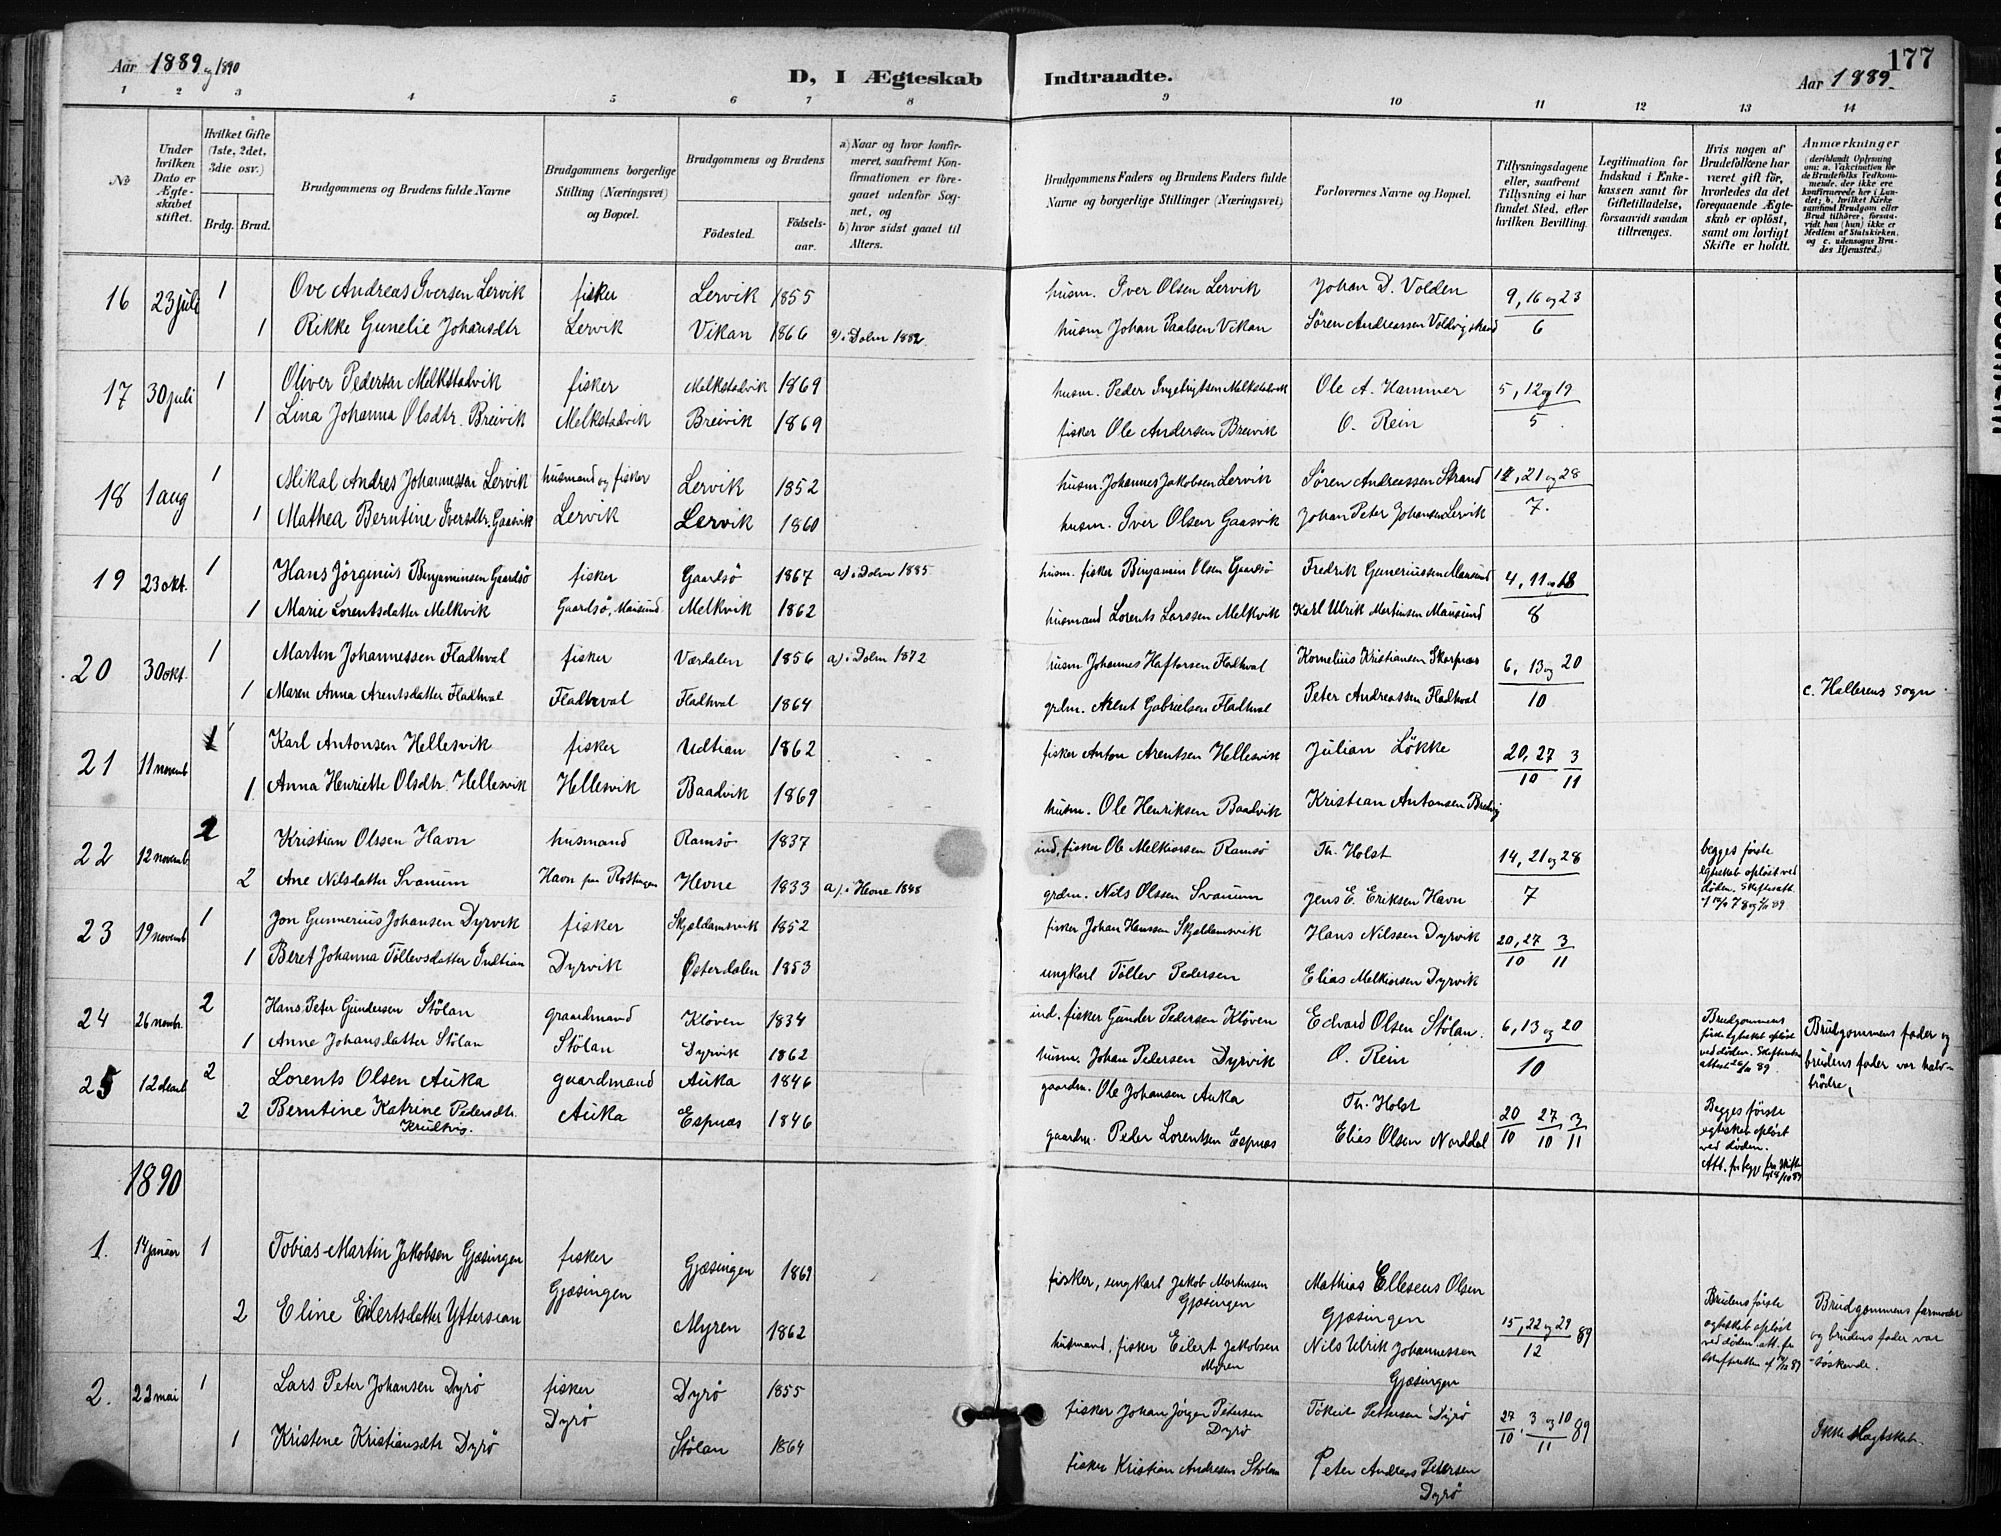 177
Aar 1889 og 1890
D, I Ægteskab Indtraadte.
Aar 1889
1 2 3 4 5 6 7 8 9 10 11 12 13 14
No
Under hvilken Dato er Ægteskabet stiftet.
Hvilket Gifte (1ste, 2det, 3die osv.)
Brdg. Brud.
Brudgommens og Brudens fulde Navne
Brudgommens borgerlige Stilling (Næringsvei) og Bopæl.
Brudgommens og Brudens
Fødested. Fødsels-aar.
a) Naar og hvor konfirmeret, saafremt Konfirmationen er foregaaet udenfor Sognet, og
b) hvor sidst gaaet til Alters.
Brudgommens Faders og Brudens Faders fulde Navne og borgerlige Stillinger (Næringsvei)
Forlovernes Navne og Bopæl.
Tillysningsdagene eller, saafremt Tillysning ei har fundet Sted, efter hvilken Bevilling.
Legitimation for Indskud i Enkekassen samt for Giftetilladelse, forsaavidt saadan tiltrænges.
Hvis nogen af Brudefolkene har været gift før, hvorledes da det foregaaende Ægteskab er opløst, samt om lovligt Skifte er holdt.
Anmærkninger (deriblandt Oplysning om: a. Vakcination for de Brudefolks Vedkommende, der ikke ere konfirmerede her i Landet; b. hvilket Kirkesamfund Brudgom eller Brud tilhører, forsaavidt han (hun) ikke er Medlem af Statskirken, og c. udensogns Brudes Hjemsted.)
16 23 juli 1 Ove Andreas Iversen Lervik fisker Lervik 1855 husm. Iver Olsen Lervik Johan D. Volden 9, 16 og 23
1 Rikke Gunelie Johansdtr Lervik Vikan 1866 a) i Dolm 1882. husm Johan Paalsen Vikan Søren Andreassen Voldvigstrand 6
17 30 juli 1 Oliver Pedersen Melkstadvik fisker Melkstadvik 1869 husm. Peder Ingebrigtsen Melkstadvik Ole A. Hammer 5, 12 og 19
1 Lina Johanna Olsdtr. Breivik Melkstadvik Breivik 1869 fisker Ole Andersen Breivik O. Rein 5
18 1 aug 1 Mikal Andres Johannessen Lervik husmand og fisker Lervik 1852 husm. Johannes Jakobsen Lervik Søren Andreassen Strand 14, 21 og 28
1 Mathea Berntine Iversdtr. Gaasvik Lervik Lervik 1860 husm. Iver Olsen Gaasvik Johan Peter Johansen Lervik 7.
19 23 okt. 1 Hans Jørginus Benjaminsen Gaardsø fisker Gaardsø 1867 a) i Dolm 1885. husm. fisker Benjamin Olsen Gaardsø Fredrik Guneriussen Mausund 4, 11 og 18
1 Marie Lorentsdatter Melkvik Gaardsø, Mausund Melkvik 1862 husmand Lorents Larssen Melkvik Karl Ulrik Martinsen Mausund 8
20 30 okt. 1 Martin Johannessen Fladhval fisker Værdalen 1856 a) i Dolm 1872 husm Johannes Haftorsen Fladhval Kornelius Kristiansen Skarpnæs 6, 13 og 20
1 Maren Anna Arentsdatter Fladhval Fladhval Fladhval 1864 grdm. Arent Gabrielsen Fladhval Peter Andreassen Fladhval 10 c. Hallerens sogn
21 11 novemb 1 Karl Antonsen Hellesvik fisker Udtian 1862 fisker Anton Arentsen Hellesvik Julian Løkke 20, 27 3
1 Anna Henriette Olsdtr. Hellesvik Hellesvik Baadvik 1869 husm. Ole Henriksen Baadvik Kristian Antonsen 10 11
22 12 novemb. 2 Kristian Olssen Havn husmand Ramsø 1837 ind. fisker Ole Melkiorsen Ramsø Th. Holst 14, 21 og 28 begges første egteskab opløst ved døden. Skifteratt.
2 Ane Nilsdatter Svanum Havn Hevne 1833 a) i Hevne 1848 grdm. Nils Olssen Svanum Jens E. Eriksen Havn 7
23 19 novemb 1 Jon Gunnerius Johansen Dyrvik fisker Skjeldamsvik 1852 fisker Johan Hanssen Skjeldamsvik Hans Nilssen Dyrvik 20, 27 3
1 Beret Johanna Tøllevsdatter Indtian Dyrvik Østerdalen 1853 ungkarl Tøllev Pedersen Elias Melkiorsen Dyrvik 10 11
24 26 novbr. 2 Hans Peter Gundersen Stølan graardmand Kløven 1834 ind. fisker Gunder Pedersen Kløven Edvard Olsen Stølan. 6, 13 og 20 Brudgommens første egteskab opløst ved døden. Brudgommens fader og
1 Anne Johansdatter Stølan Stølan Dyrvik 1862 husm. Johan Pedersen Dyrvik O. Rein 10 brudens fader var halvbrødre,
25 12 decemb 2 Lorents Olsen Auka gaardmand Auka 1846 gaardm. Ole Johansen Auka Th. Holst 20 27 3 Begges første egteskab opløst ved døden.
2 Berntine Katrine Pedersdtr. Auka Espnæs 1846 gaardm. Peder Lorentsen Espnæs Elias Olsen Norddal 10 10 11
1890
1. 14 januar 1 Tobias Martin Jakobsen Gjæsingen fisker Gjæsingen Gjæsingen 1869 fisker, ungkarl Jakob Martinsen Gjæsingen Mathias Ellesens Olsen Gjæsingen
2 Eline Eilertsdatter Yttersian Myren 1862 husmand, fisker Eilert Jakobsen Myren Nils Ulrik Johannessen Gjæsingen 15, 22 og 29 89 12 Brudens første egteskab opløst ved døden Brudgommens farmoder og brudens fader var søskende.
2. 22 mai 1 Lars Peter Johansen Dyrø fisker Dyrø Dyrø 1855 fisker Johan Jørgen Petersen Dyrø Pettersen Dyrø 27 3 og 10 89
1 Kristene Kristiansdtr Dyrø Stølan 1864 fisker Kristian Andresen Stølan Peter Andreas Petersen Dyrø 10 11 Ikke slægtskab